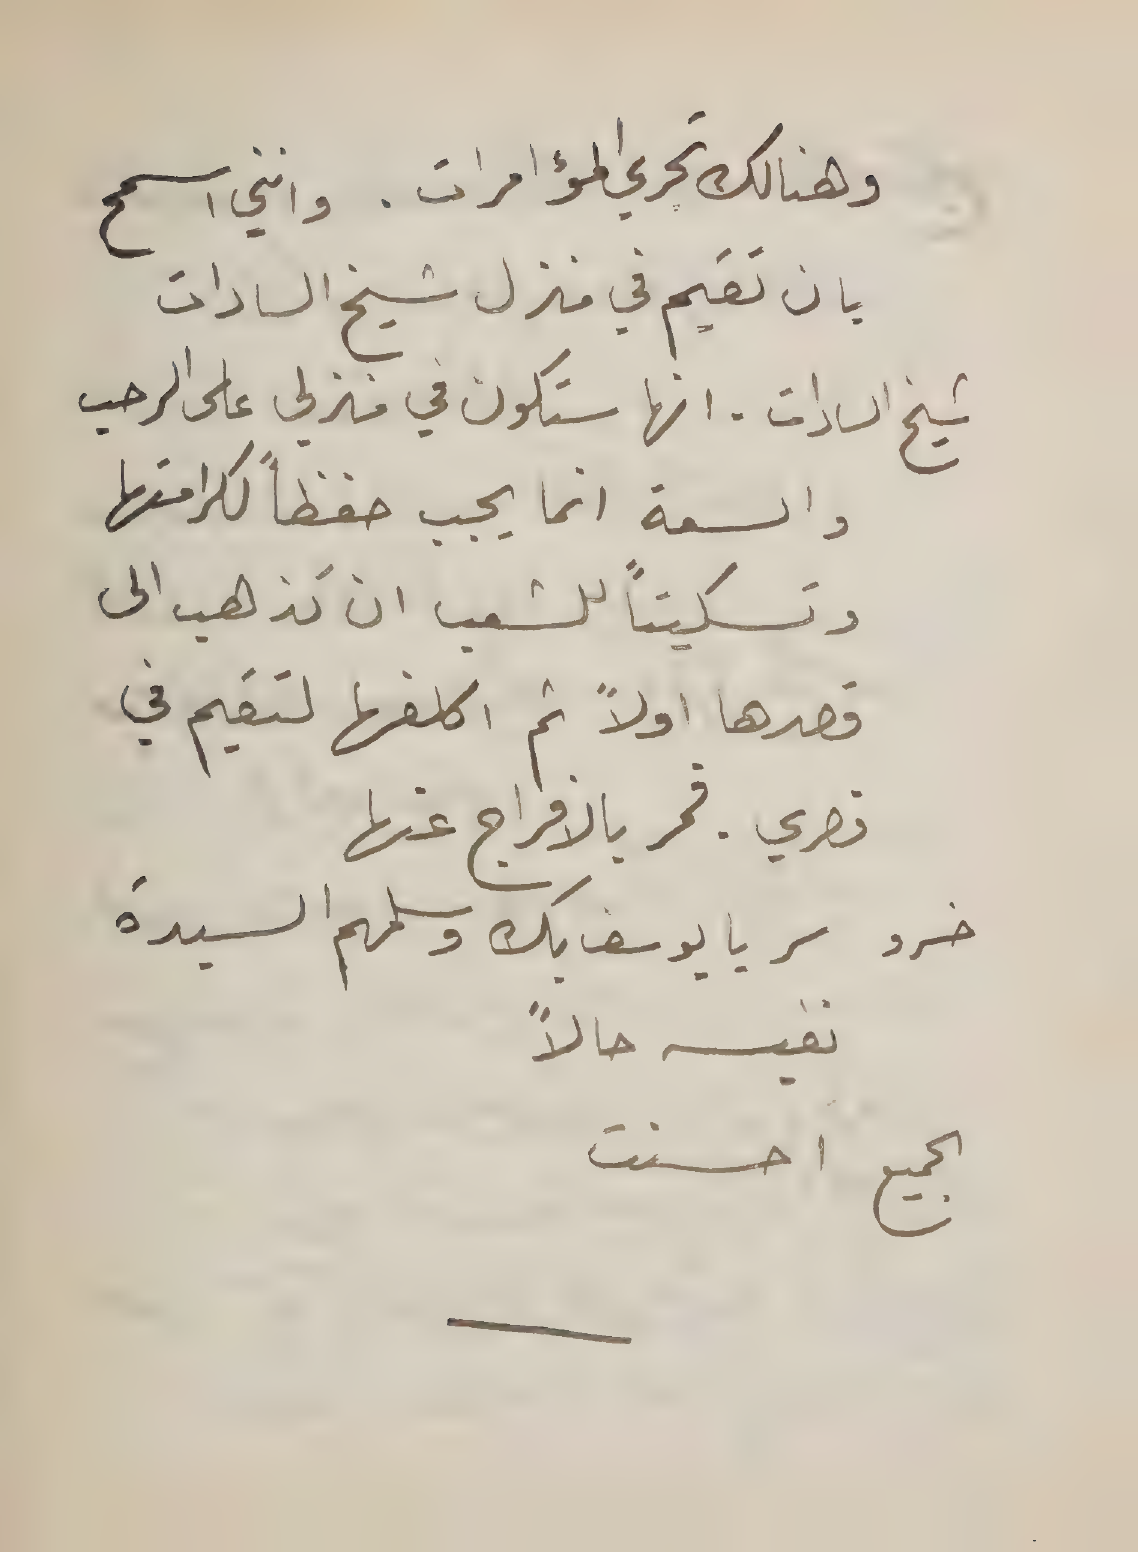 وهنالك تجري المؤامرات . وانني اسمح
بان تقيم في منزل شيخ السادات
شيخ السادات . انها ستكون في منزلي على الرحب
والسعة انما يجب حفظاً لكرامتها
وتسكيتاً للشعب ان تذهب الى
قصرها اولاً ثم اكلفها لتقيم في
قصري . فمر بالافراج عنها
خسرو سر يا يوسف بك وسلمهم السيدة
نفيسه حالاً
الجميع احسنت